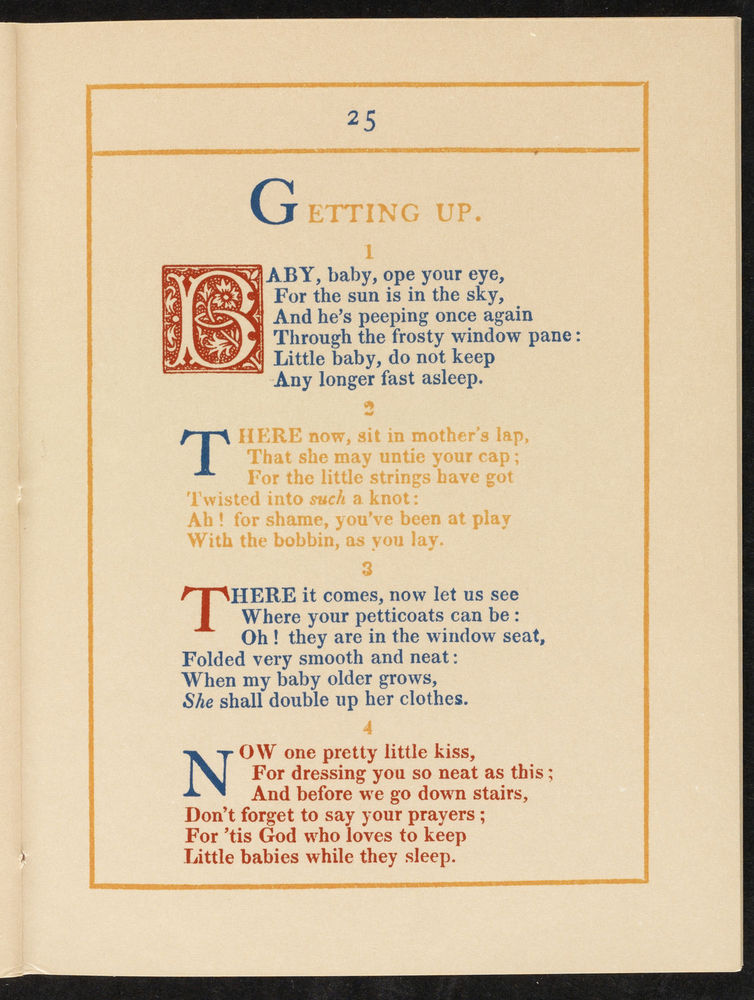 25
GETTING UP.
1
BABY, baby, ope your eye,
For the sun is in the sky,
And he's peeping once again
Through the frosty window pane:
Little baby, do not keep
Any longer fast asleep.
2
THERE now, sit in mother's lap,
That she may untie your cap;
For the little strings have got
Twisted into such a knot:
Ah! for shame, you've been at play
With the bobbin, as you lay.
3
THERE it comes, now let us see
Where your petticoats can be:
Oh! they are in the window seat,
Folded very smooth and neat:
When my baby older grows,
She shall double up her clothes.
4
NOW one pretty little kiss,
For dressing you so neat as this;
And before we go down stairs,
Don't forget to say your prayers;
For 'tis God who loves to keep
Little babies while they sleep.